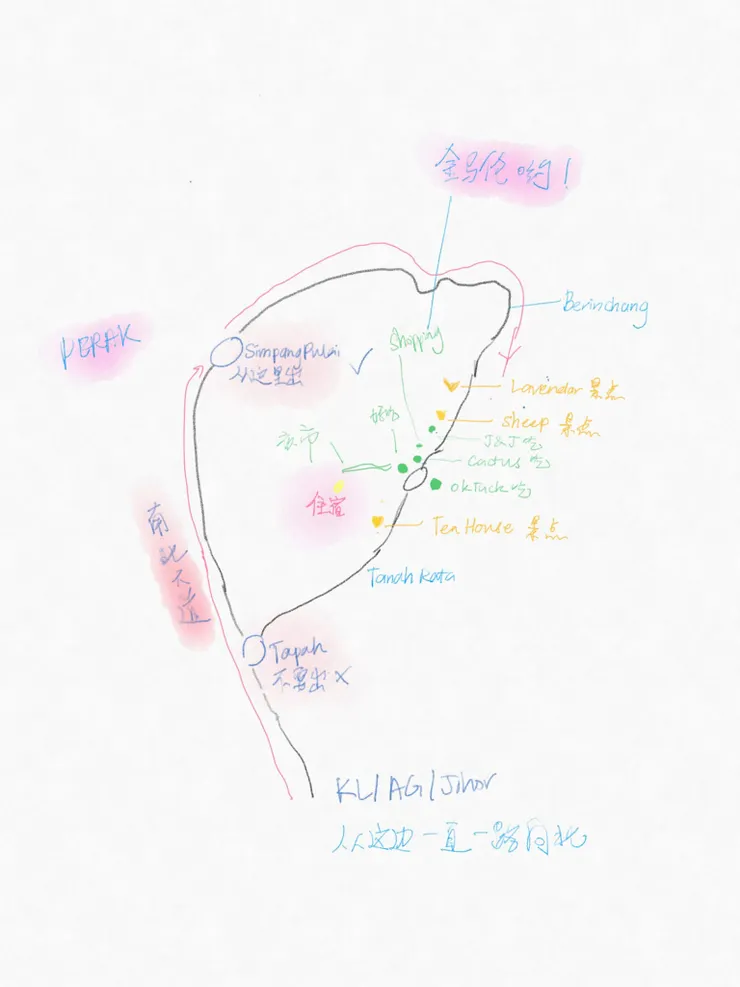 金马伦哟！
Berinchang
PERAK
Simpang Pulai
从这里出
Shopping
Lavendar 景点
Sheep 景点
好吃
J&J 吃
夜市
Cactus 吃
住宿
OkTuck 吃
Tea House 景点
南北大道
Tanah Rata
Tapah
不要出 X
KL/AG/Jihor
从这边一直一路向北